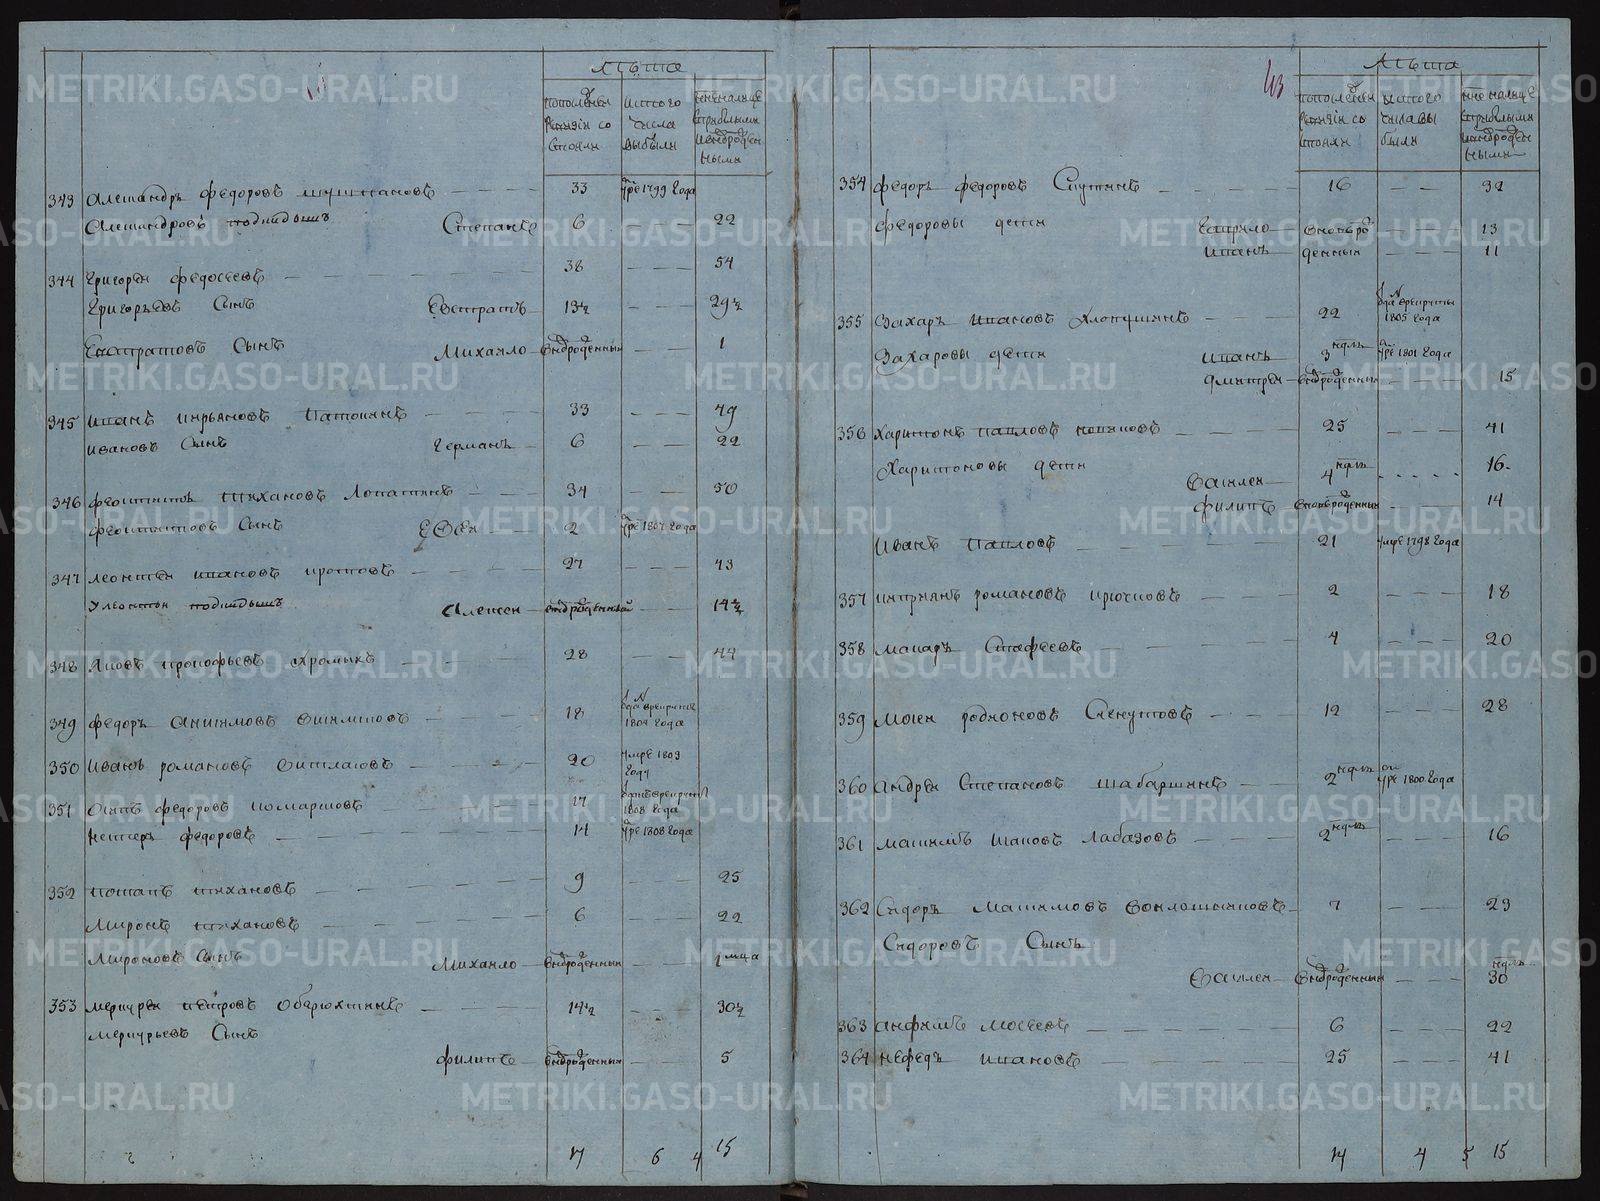 Лѣта
по последней ревизіи со стояли
изтого числа выбыли
ныне налице с прибылыми и вновьрожденными
343 Александръ федоровъ 33 умре 1799 года
Александровъ подкидышъ Степанъ 6 — — — 22
344 Григорей федосеевъ — — — 38 — — — 54
Григорьевъ Сынъ Евстратъ — 13½ — — — 29½
Евстратовъ Сынъ Михайло — вновьрожденный — — — 1
345 Иванъ Кирьяновъ — — — 33 — — — 49
Ивановъ Сынъ Германъ — 6 — — — 22
346 феоктистъ Тихановъ Лопатинъ — — — 34 — — 50
феоктистовъ Сынъ Евсей — 2 умре 1807 года
347 Леонтей Ивановъ Кротовъ — — — 27 — — — 43
Улеонтья подкидышъ Алексей — вновьрожденный — — 14½
348 Яковъ прокофьевъ Хромыхъ — — — 28 — — — 44
349 федоръ Аникимовъ — — — 18 отданъ в рекруты 1804 года
350 Иванъ романовъ — — — 20 умре 1809 году
351 Осипъ федоровъ Комаровъ — — — 17 отданъ в рекруты 1808 года
Нестеръ федоровъ — — — 14 умре 1808 года
352 Потапъ Тихановъ — — — 9 — — — 25
Миронъ Тихановъ — — — 6 — — — 22
Мироновъ Сынъ Михайло — вновьрожденный — — — 1 мца
353 Меркурей Петровъ Обрюхтинъ — — — 14½ — — 30½
Меркурьевъ Сынъ
филипъ — вновьрожденный — — — 5
17 6 4 15
43
Лѣта
по последней ревизіи со стояли
изтого числа вы были
ныне налице с прибылыми и вновьрожденными
354 федоръ федоровъ — — — 16 — — 32
федоровы дети Гаврило — вновьро — — — 13
Иванъ — жденныи — — — 11
355 Захаръ Ивановъ Хлопушинъ — — — 22 отданъ в рекруты 1805 года
Захаровы дети Иванъ — 3 недѣль умре 1801 года
Дмитрей — вновьрожденный — — — 15
356 Харитонъ Павловъ Новиковъ — — — 25 — — — 41
Харитоновы дети 4 недѣль 16
Василей
филипъ — вновьрожденный — — — 14
Иванъ Павловъ — — — 21 умре 1798 года
357 Киприянъ романовъ Крючковъ — — — 2 — — — 18
358 Макаръ Стафеевъ — — — 4 — — — 20
359 Мосей родионовъ Секутовъ — — — 12 — — — 28
360 Андрей Степановъ Шабаршинъ — 2 недѣль умре 1800 года
361 Максимъ Яковъ Лабазовъ — — — 2 недѣль — — — 16
362 Сидоръ Максимовъ — 7 — — — 23
Сидоровъ Сынъ
Василей — вновьрожденный — — 30 недѣль
363 Анфимъ Мосеевъ — — — 6 — — — 22
364 Нефедъ Ивановъ — — — 25 — — — 41
14 4 5 15
METRIKI.GASO-URAL.RU